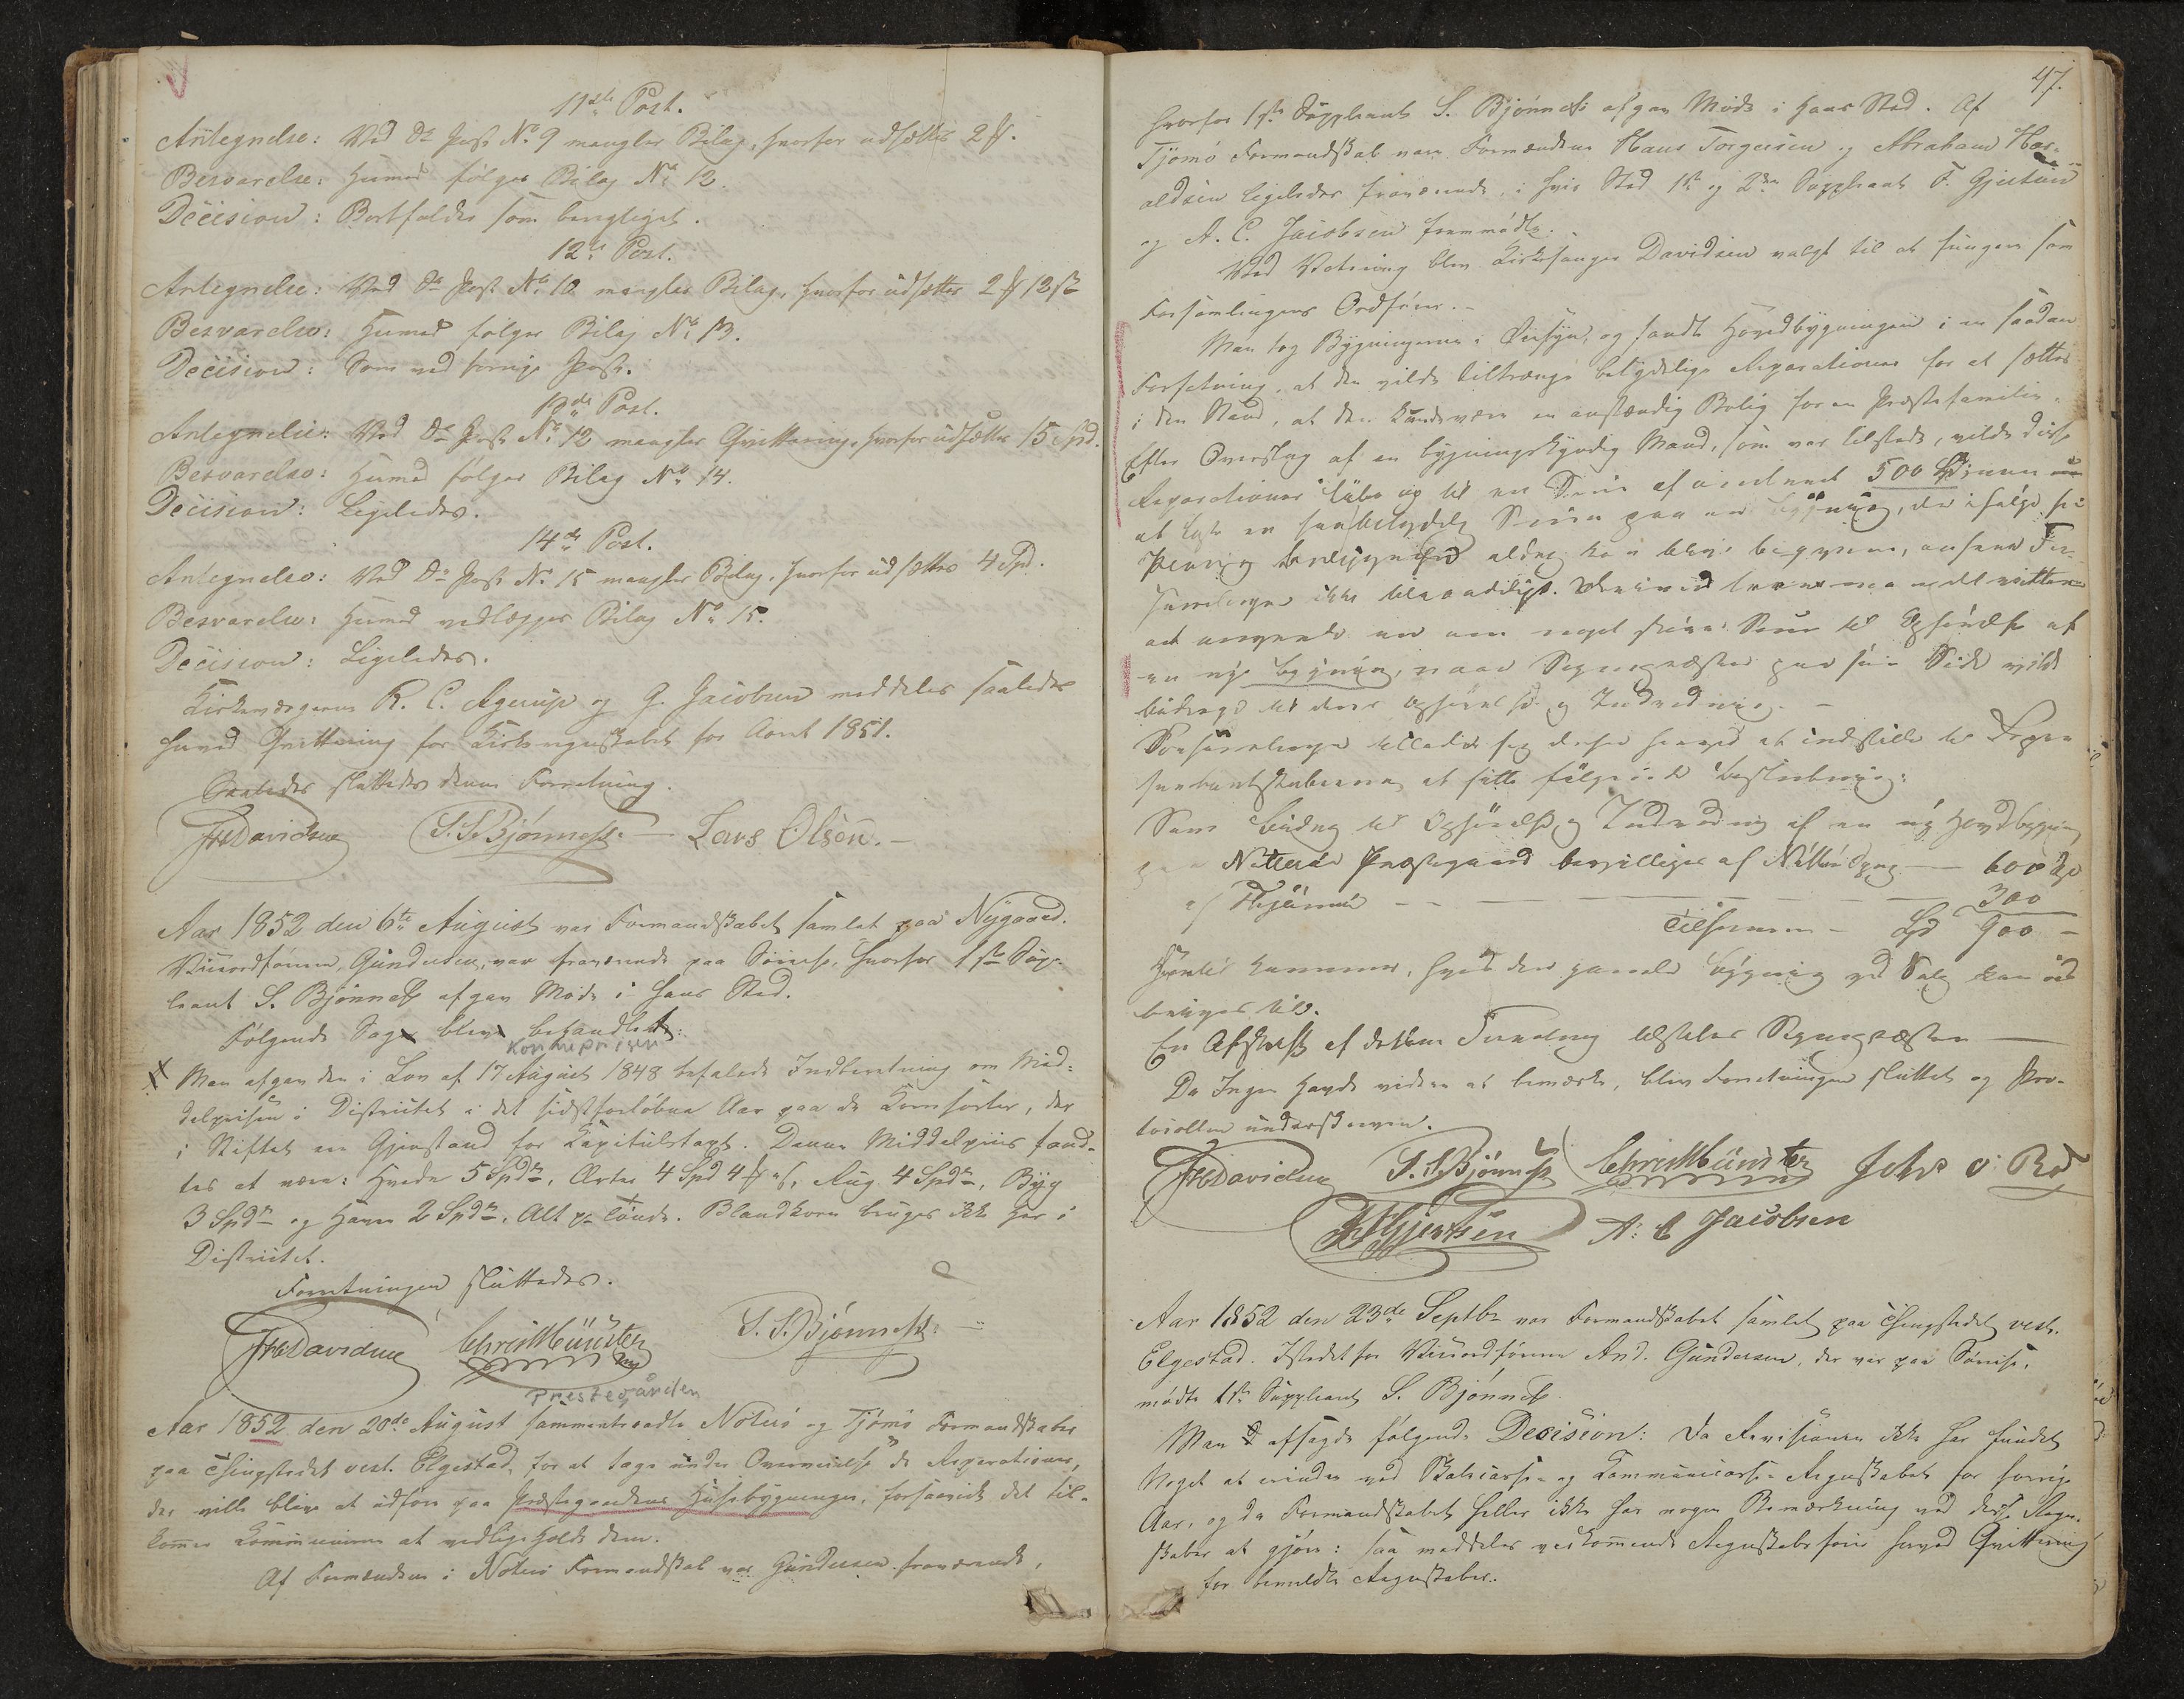 11te Post.
Antegnelse: Ved Do Post No 9 mangler Bilag, hvorfor udsættes 2 
Besvarelse: Hermed følger Bilag No 12.
Decision: Bortfalder som berigtiget.
12te Post.
Antegnelse: Ved Do Post No 10 mangler Bilag, hvorfor udsættes 2 12 
Besvarelse: Hermed følger Bilag No 13.
Decision: Som ved forrige Post.
13de Post.
Antegnelse: Ved Do Post No 12 mangler Qvittering, hvorfor udsættes 15 Spd.
Besvarelse: Hermed følger Bilag No 14.
Decision: Ligeledes.
14de Post.
Antegnelse: Ved Do Post No 15 mangler Bilag, hvorfor udsættes 4 Spd.
Besvarelse: Hermed vedlægges Bilag No 15.
Decision: Ligeledes.
Kirkeværgerne R. C. Agerup og G. Jacobsen meddeles saaledes
herved Qvittering for Kirkeregnskabet for Aaret 1851.
Saaledes sluttedes denne Forretning.
FrDavidsen S. S. Bjønness. Lars Olsøn.
Aar 1852 den 6te August var Formandskabet samlet paa Nygaard.
Viceordføreren, Gundersen, var fraværende paa Søreise, hvorfor 1ste Sup-
leant S. Bjønness afgav Møde i hans Sted.
Følgende Sag blev behandlet:
Kornprisen
Man afgav den i Lov af 17 August 1848 befalede Indberetning om Mid-
delprisen i Districtet i det sidstforløbne Aar paa de Kornsorter, der
i Stiftet er Gjenstand for Kapitelstaxt. Denne Middelpriis fand-
tes at være: Hvede 5 Spdr, Erter 4 Spd 4, Rug 4 Spdr, Byg
3 Spdr og Havre 2 Spdr, Alt pr Tønde. Blandkorn bruges ikke her i
Districtet.
Forretningen sluttedes.
FrDavidsen ChrMünster S. S. Bjønness.
Prestegården
Aar 1852 den 20de August sammentraadte Nøterø og Tjømø Formandskaber
paa Thingstedet vest. Elgestad, for at tage under Overveielse de Reparationer,
der ville blive at udføre paa Præstegaardens Huusebygninger, forsaavidt det til-
kommer Kommunerne at vedligeholde dem.
Af Formændene i Nøterø Formandskab var Gundersen fraværende,
47.
hvorfor 1ste Suppleant S. Bjønness afgav Møde i hans Sted. Af
Tjømø Formandskab vare Formændene Hans Torgersen og Abraham Har-
aldsen ligeledes fraværende, i hvis Sted 1ste og 2den Suppleant F. Gjertsen
og A. C. Jacobsen fremmødte.
Ved Votering blev Kirkesanger Davidsen valgt til at fungere som
Forsamlingens Ordfører.
Man tog Bygningerne i Øiesyn, og fandt Hovedbygningen i en saadan
Forfatning, at den vilde tiltrænge betydelige Reparationer for at sættes
i den Stand, at den kunde være en anstændig Bolig for en Præstefamilie.
Efter Overslag af en bygningskyndig Mand, som var tilstede, vilde disse
Reparationer løbe op til en Sum af omtrent 500 Spd; men
at koste en saa betydelig Sum paa en Bygning, der ifølge sin
aldrig kan blive, ansaa For-
samlingen ikke tilraadeligt.
at anvende en noget større Sum til Opførelse af
en ny Bygning, naar Sognepræsten paa sin Side vilde
bidrage til dens Opførelse og Indredning.
Forsamlingen tillader sig derfor herved at indstille til Repræ-
sentantskaberne at fatte følgende Beslutning:
Som Bidrag til Opførelse og Indredning af en ny Hovedbygning
paa Nøtterø Præstegaard bevilliges af Nøtterø Sogn 600 Spd
af Thjømø 300
Tilsammen Spd 900
Hertil kommer, hvad den gamle Bygning ved Salg kan ud-
bringes til.
En Afskrift af denne Forretning tilstilles Sognepræsten
Da Ingen havde videre at bemærke, blev Forretningen sluttet og Pro-
tocollen underskreven.
FrDavidsen S. S. Bjønness ChrMünster
F. Gjertsen A. C Jacobsen
Aar 1852 den 23de Septbr var Formandskabet samlet paa Thingstedet vest.
Elgestad. Istedetfor Viceordfører And. Gundersen, der var paa Søreise,
mødte 1ste Suppleant S. Bjønness.
Man afsagde følgende Decision: Da Revisionen ikke har fundet
Noget at erindre ved Skolecasse- og Kommunecasse-Regnskabet for forrige
Aar, og da Formandskabet heller ikke har nogen Bemærkning ved disse Regn-
skaber at gjøre: saa meddeles vedkommende Regnskabsfører herved Qvittering
for bemeldte Regnskaber.